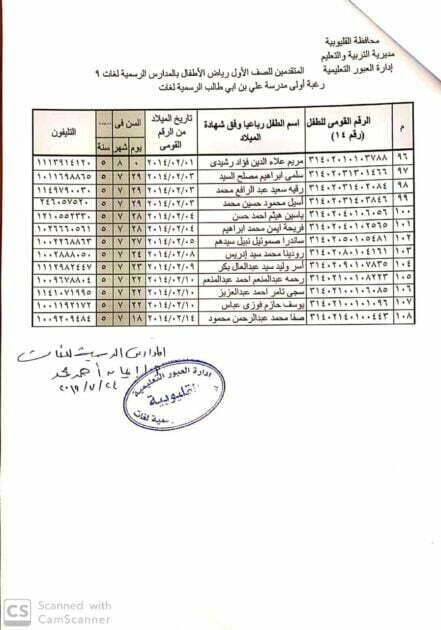 محافظة القليوبية
مديرية التربية والتعليم
إدارة العبور التعليمية
المتقدمين للصف الأول رياض الأطفال بالمدارس الرسمية لغات ٩
رغبة أولى مدرسة علي بن ابي طالب الرسمية لغات
م الرقم القومى للطفل (رقم ١٤) اسم الطفل رباعيا وفق شهادة الميلاد تاريخ الميلاد من الرقم القومى السن فى يوم شهر سنة التليفون
٩٦ ٣١٤٠٢٠١٠١٠٣٧٨٨ مريم علاء الدين فؤاد رشيدى ٢٠١٤/٠٢/٠١ ٠ ٨ ٥ ١١١٣٩١٤١٢٠
٩٧ ٣١٤٠٢٠٣١٣٠١٤٦٦ سلمى ابراهيم مصلح السيد ٢٠١٤/٠٢/٠٣ ٢٩ ٧ ٥ ١٠١١٦٩٨٨٦٥
٩٨ ٣١٤٠٢٠٣١٤٠٢٠٨٤ رقيه سعيد عبد الرافع محمد ٢٠١٤/٠٢/٠٣ ٢٩ ٧ ٥ ١١٤٩٧٩٠٠٣٠
٩٩ ٣١٤٠٢٠٣١٤٠٣٨٤٦ أسيل محمود حسين محمد ٢٠١٤/٠٢/٠٣ ٢٩ ٧ ٥ ٢٤٦٠٥٧٥٢٠
١٠٠ ٣١٤٠٢٠٤٠١٠٦٠٥٦ ياسين هيثم احمد حسن ٢٠١٤/٠٢/٠٤ ٢٨ ٧ ٥ ١٢١٠٥٥٢٣٣٠
١٠١ ٣١٤٠٢٠٤٠١٠٢٥٦٥ فريحة ايمن محمد ابراهيم ٢٠١٤/٠٢/٠٤ ٢٨ ٧ ٥ ١٠٢٦٦٦٠٥٦١
١٠٢ ٣١٤٠٢٠٥٠١٠٥٤٨١ ساندرا صموئيل نبيل سيدهم ٢٠١٤/٠٢/٠٥ ٢٧ ٧ ٥ ١٠٠٢٢٦٨٨٦٣
١٠٣ ٣١٤٠٢٠٨٠١٠٤١٦١ رودينا محمد سيد إدريس ٢٠١٤/٠٢/٠٨ ٢٤ ٧ ٥ ١٠٠٢٨٨٨٠٥٠
١٠٤ ٣١٤٠٢٠٩٠١٠٧٨٣٥ آسر وليد سيد عبدالعال بكر ٢٠١٤/٠٢/٠٩ ٢٣ ٧ ٥ ١١١٢٩٨٢٤٤٧
١٠٥ ٣١٤٠٢١٠٠١٠٨٢٢٣ رحمه عبدالمنعم احمد عبدالمنعم ٢٠١٤/٠٢/١٠ ٢٢ ٧ ٥ ١٠٠٩٦٧٨٨٠٤
١٠٦ ٣١٤٠٢١٠٠١٠٦٠٨٥ سجى تامر احمد عبدالعزيز ٢٠١٤/٠٢/١٠ ٢٢ ٧ ٥ ١١٤١٠٧١٩٩٥
١٠٧ ٣١٤٠٢١٠٠١٠١٠٩٦ يوسف حازم فوزى عباس ٢٠١٤/٠٢/١٠ ٢٢ ٧ ٥ ١٠٠١١٩٢١٧٢
١٠٨ ٣١٤٠٢١٤٢١٠٠٤٤٣ صفا محمد عبدالرحمن محمود ٢٠١٤/٠٢/١٤ ١٨ ٧ ٥ ١٠٠٩٢٠٩٤٨٤
المدارس الرسمية لغات
أحمد محمد
٢٠١٩/٧/٢٤
ادارة العبور التعليمية
القليوبية
رسمية لغات
CS Scanned with
CamScanner